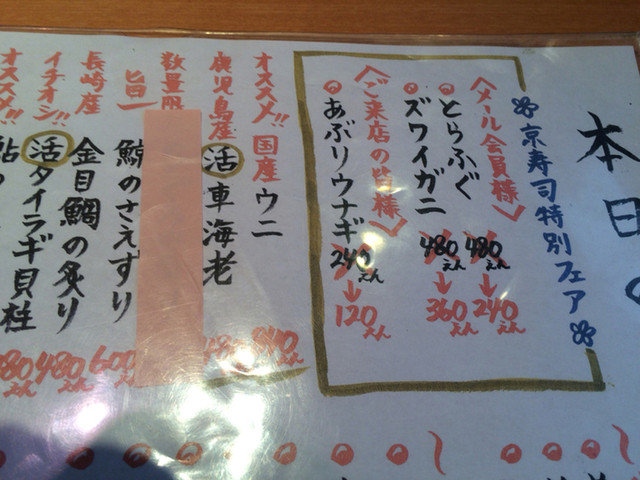 本日の
京寿司特別フェア
〈メール会員様〉
とらふぐ 480えん→240えん
ズワイガニ 480えん→360えん
〈ご来店の皆様〉
あぶりウナギ 240えん→120えん
オススメ!! 国産ウニ 840えん
鹿児島産 活車海老 480えん
数量限
旨一 鯨のさえずり 600えん
長崎産 金目鯛の炙り 480えん
イチオシ!! 活タイラギ貝柱 480えん
オススメ!!